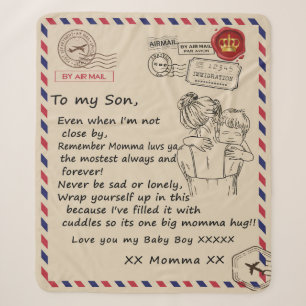 AIRMAIL
BY AIR MAIL
PAR AVION
BY AIR MAIL
12345
IMMIGRATION
To my Son,
Even when I'm not
close by,
Remember Momma luvs ya
the mostest always and
forever!
Never be sad or lonely,
Wrap yourself up in this
because I've filled it with
cuddles so its one big momma hug!!
Love you my Baby Boy XXXXX
XX Momma XX